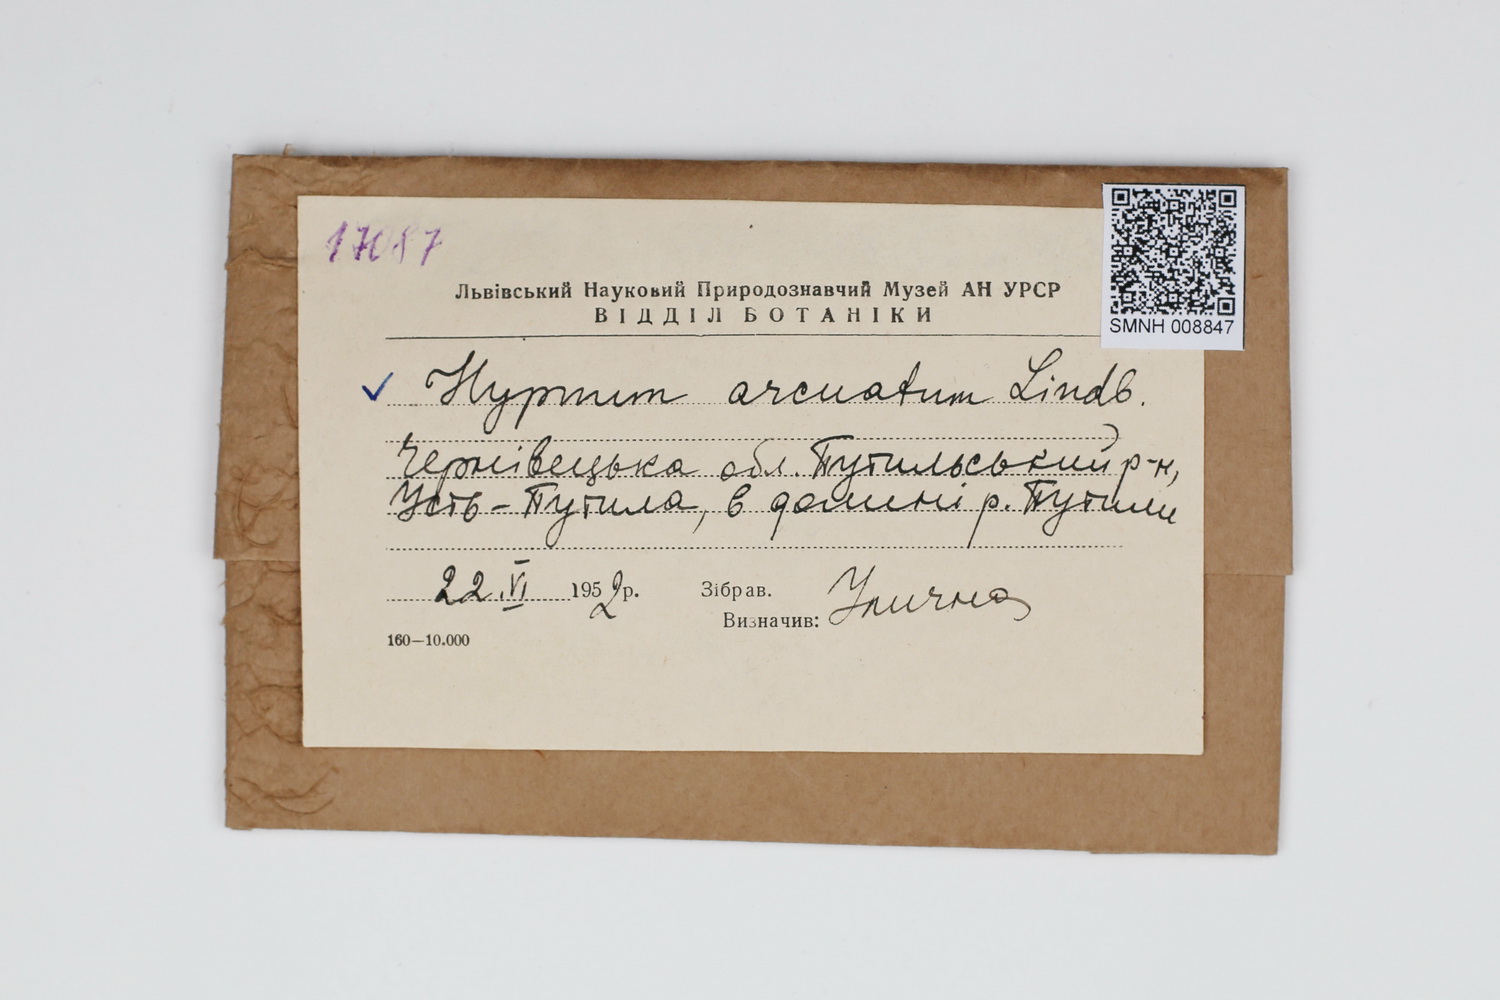 17087
Львівський Науковий Природознавчий Музей АН УРСР
ВІДДІЛ БОТАНІКИ
SMNH 008847
✓ Hypnum arcuatum Lindb.
Чернівецька обл. Путильський р-н,
Усть-Путила, в долині р. Путили
22.VI 1952р.
Зібрав.
Визначив: Улична
160—10.000